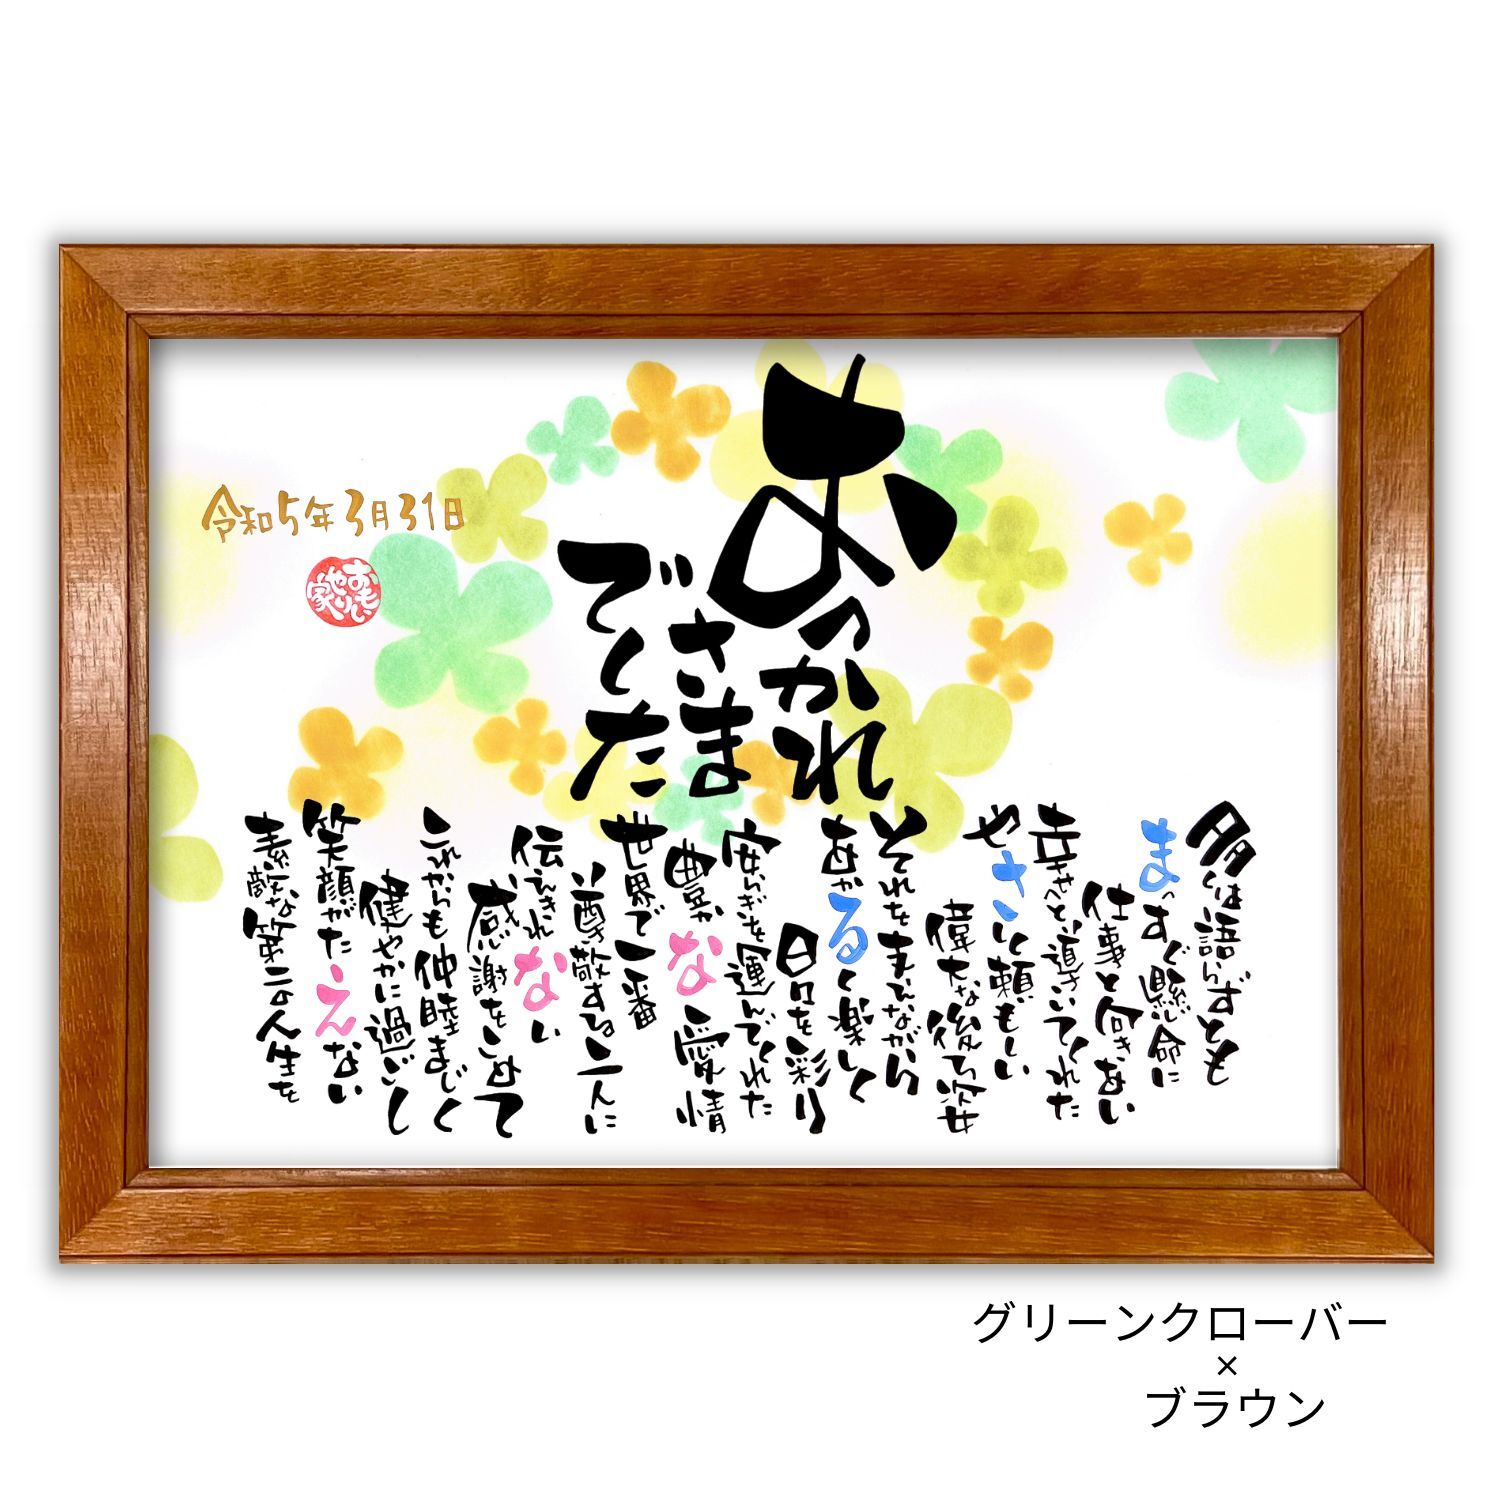 おつかれ
さま
でした
多くは語らずとも
まっすぐ懸命に
仕事と向きあい
幸せへと導いてくれた
やさしく頼もしい
偉大な後ろ姿
それを支えながら
あかるく楽しく
日々を彩り
安らぎを運んでくれた
豊かな愛情
世界で一番
尊敬する二人に
伝えきれない
感謝をこめて
これからも仲睦まじく
健やかに過ごし
笑顔がたえない
素敵な第二の人生を
令和5年3月31日
おもいやり家
グリーンクローバー
×
ブラウン